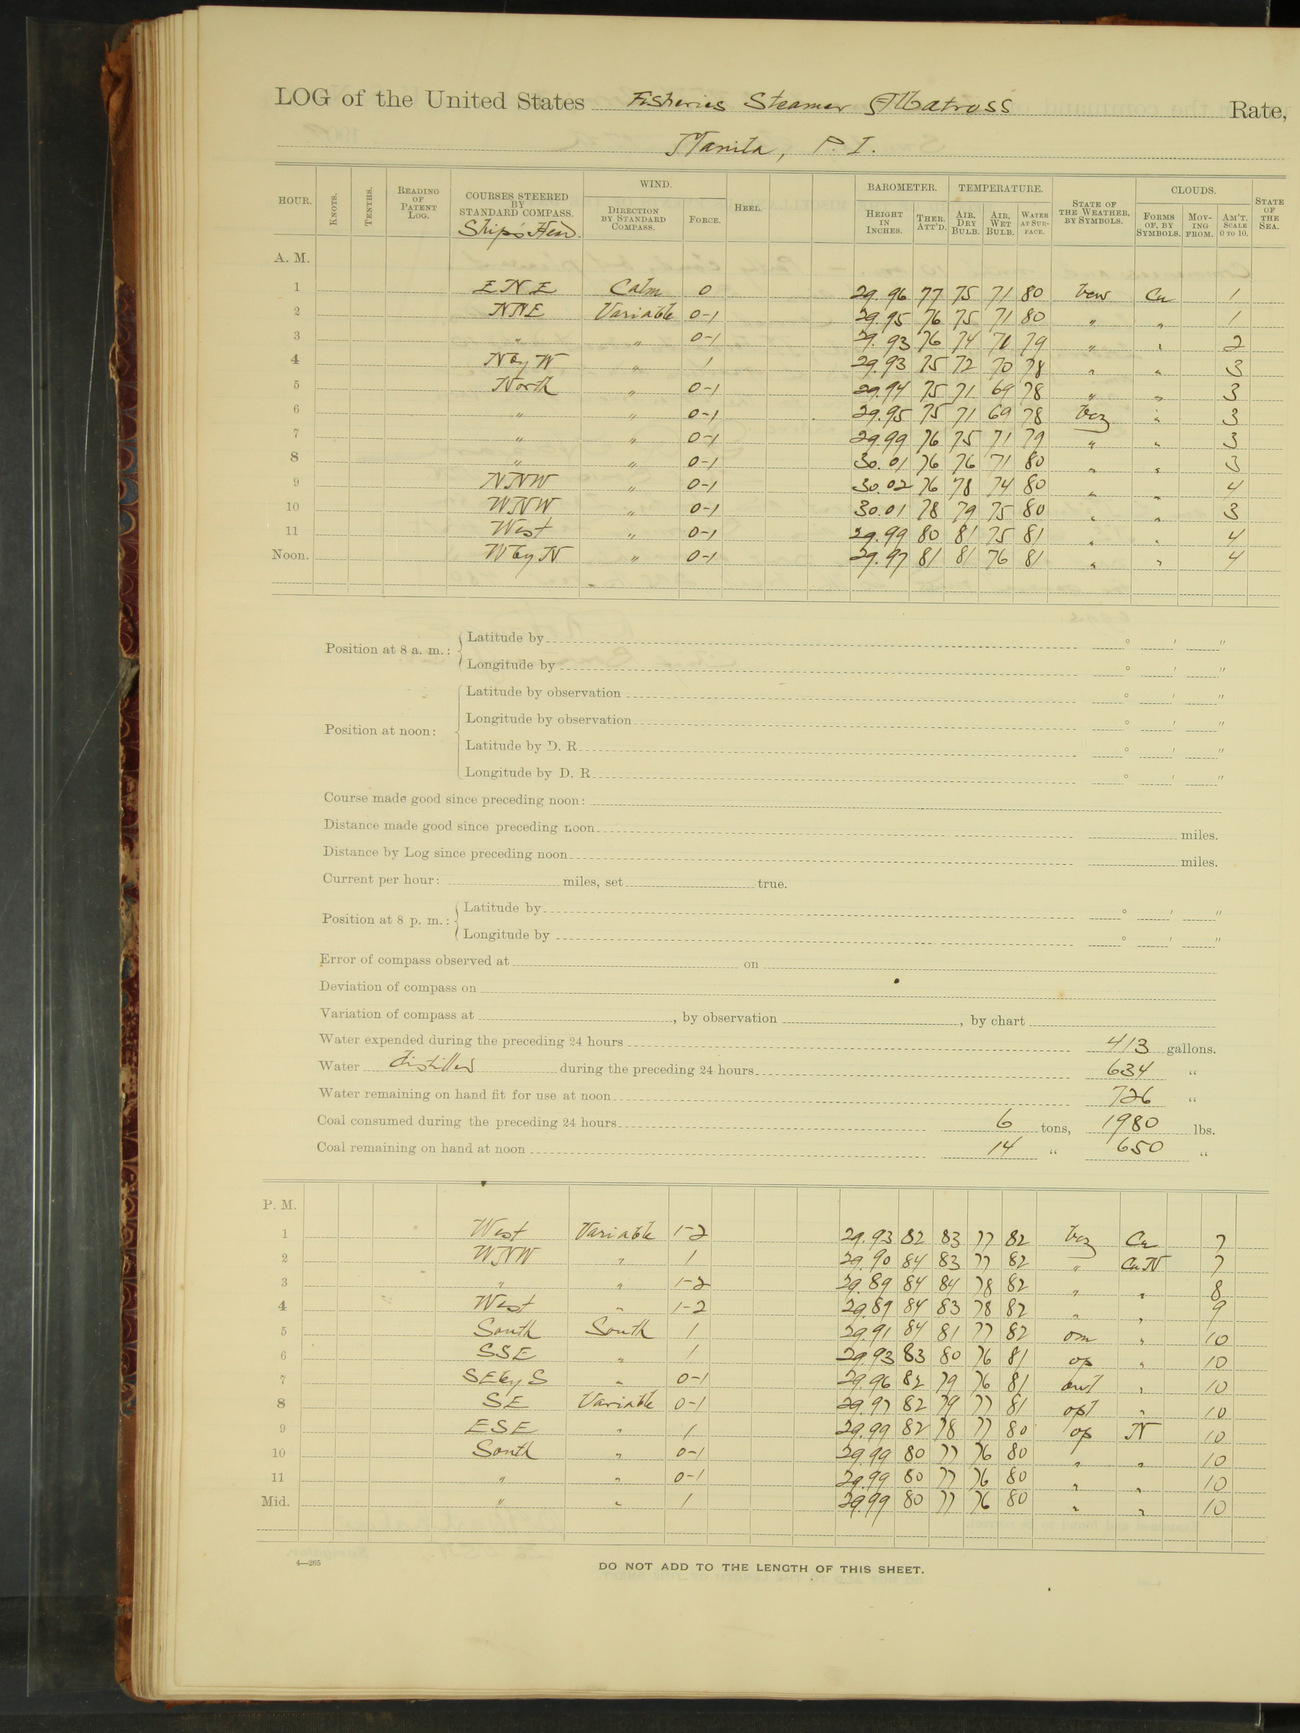 LOG of the United States Fisheries Steamer Albatross Rate,
Manila, P. I.
HOUR. KNOTS. TENTHS. READING OF PATENT LOG. COURSES STEERED BY STANDARD COMPASS. Ship's Head. WIND. DIRECTION BY STANDARD COMPASS. FORCE. HEEL. BAROMETER. HEIGHT IN INCHES. THER. ATT'D. TEMPERATURE. AIR, DRY BULB. AIR, WET BULB. WATER AT SURFACE. STATE OF THE WEATHER, BY SYMBOLS. CLOUDS. FORMS OF, BY SYMBOLS. MOVING FROM. AM'T. SCALE 0 TO 10. STATE OF THE SEA.
A. M.
1 ENE Calm 0 29.96 77 75 71 80 bcw Cu 1
2 NNE Variable 0-1 29.95 76 75 71 80 " " 1
3 " " 0-1 29.93 76 74 71 79 " " 2
4 N by W " 1 29.93 75 72 70 78 " " 3
5 North " 0-1 29.94 75 71 69 78 " " 3
6 " " 0-1 29.95 75 71 69 78 bcz " 3
7 " " 0-1 29.99 76 75 71 79 " " 3
8 " " 0-1 30.01 76 76 71 80 " " 3
9 NNW " 0-1 30.02 76 78 74 80 " " 4
10 WNW " 0-1 30.01 78 79 75 80 " " 3
11 West " 0-1 29.99 80 81 75 81 " " 4
Noon. W by N " 0-1 29.97 81 81 76 81 " " 4
Position at 8 a. m.: Latitude by ° ' "
Longitude by ° ' "
Position at noon: Latitude by observation ° ' "
Longitude by observation ° ' "
Latitude by D. R. ° ' "
Longitude by D. R. ° ' "
Course made good since preceding noon:
Distance made good since preceding noon miles.
Distance by Log since preceding noon miles.
Current per hour: miles, set true.
Position at 8 p. m.: Latitude by ° ' "
Longitude by ° ' "
Error of compass observed at on
Deviation of compass on
Variation of compass at , by observation , by chart
Water expended during the preceding 24 hours 413 gallons.
Water distilled during the preceding 24 hours 634 "
Water remaining on hand fit for use at noon 726 "
Coal consumed during the preceding 24 hours 6 tons, 1980 lbs.
Coal remaining on hand at noon 14 " 650 "
P. M.
1 West Variable 1-2 29.93 82 83 77 82 bcz Cu 7
2 WNW " 1 29.90 84 83 77 82 " CuN 7
3 " " 1-2 29.89 84 84 78 82 " " 8
4 West " 1-2 29.89 84 83 78 82 " " 9
5 South South 1 29.91 84 81 77 82 om " 10
6 SSE " 1 29.93 83 80 76 81 op " 10
7 SE by S " 0-1 29.96 82 79 76 81 " 10
8 SE Variable 0-1 29.97 82 79 77 81 opt " 10
9 ESE " 1 29.99 82 78 77 80 op N 10
10 South " 0-1 29.99 80 77 76 80 " " 10
11 " " 0-1 29.99 80 77 76 80 " " 10
Mid. " " 1 29.99 80 77 76 80 " " 10
4—265 DO NOT ADD TO THE LENGTH OF THIS SHEET.